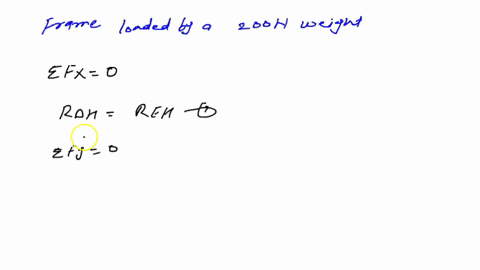 Frame loaded by a 200N weight
ΣFx = 0
RDH = REH —①
ΣFy = 0